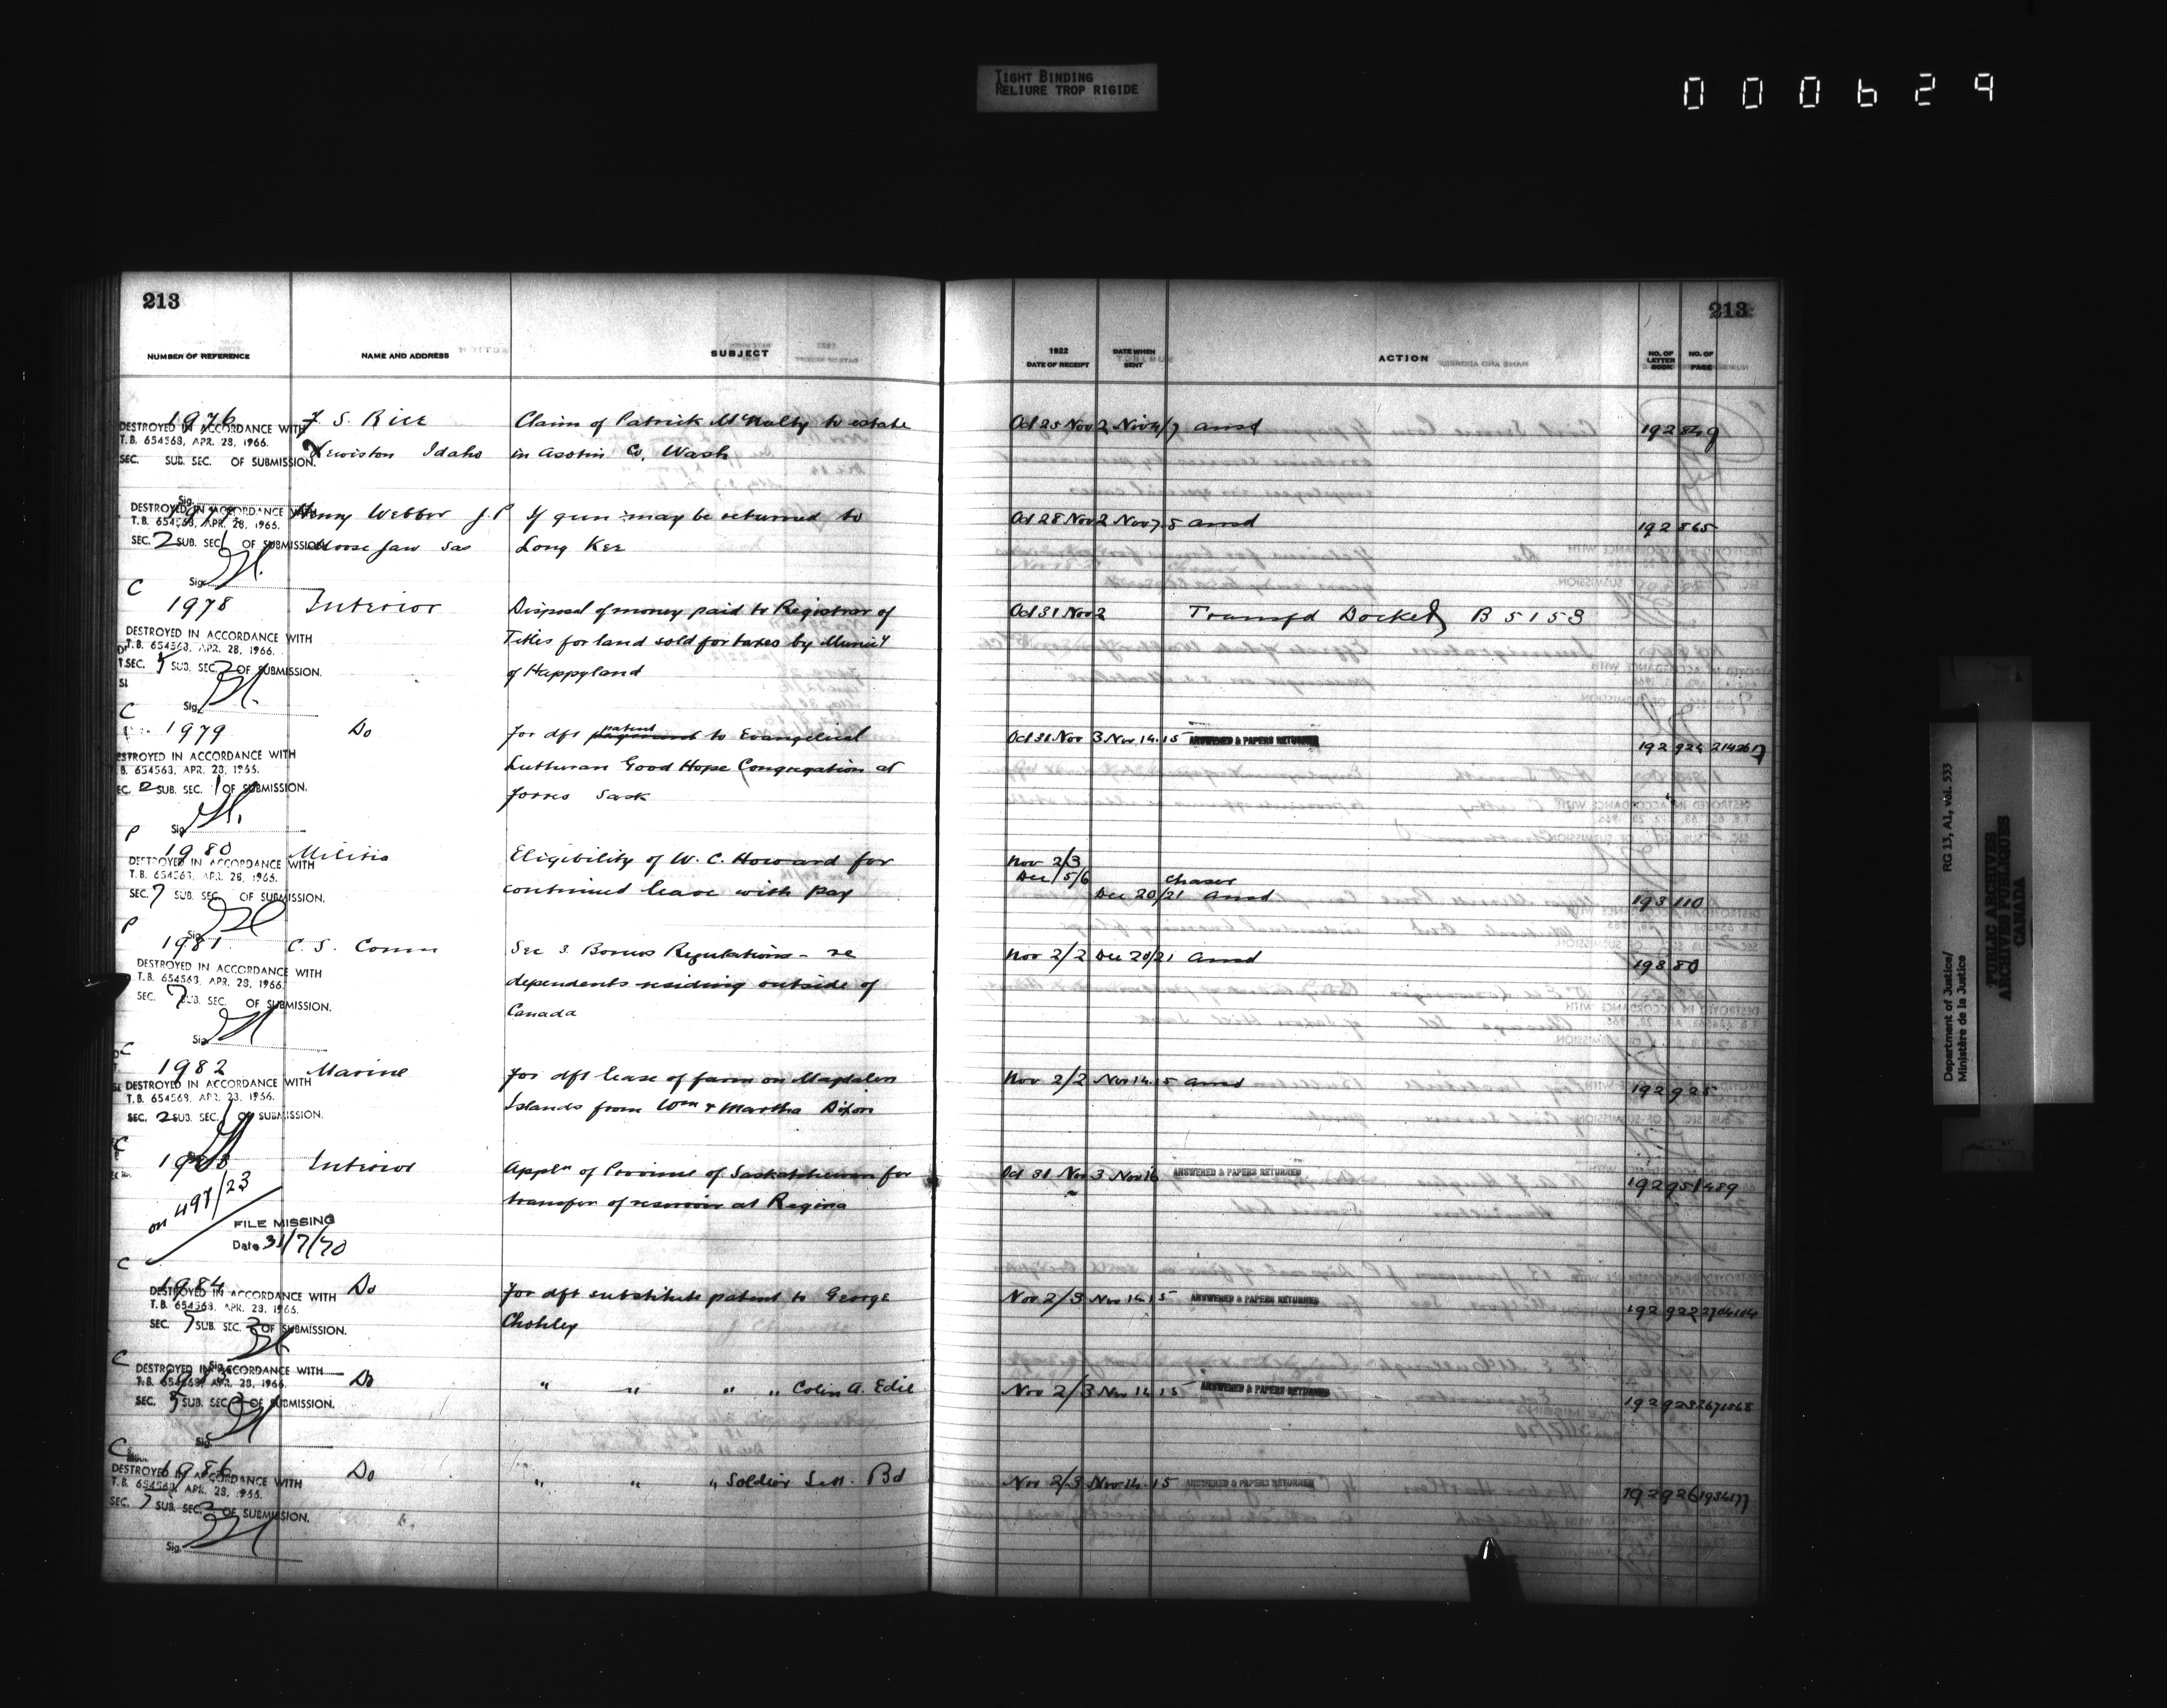 TIGHT BINDING
RELIURE TROP RIGIDE
000629
213
213
NUMBER OF REFERENCE NAME AND ADDRESS SUBJECT 1922 DATE OF RECEIPT DATE WHEN SENT ACTION NO. OF LETTER BOOK NO. OF PAGE
1976 F. S. Rice Claim of Patrick McNulty to estate Oct 25 Nov 2 Nov 4/7 ansd 192 849
DESTROYED IN ACCORDANCE WITH
T.B. 654568, APR. 28, 1966.
Lewiston Idaho in Asotin Co. Wash
SEC. SUB. SEC. OF SUBMISSION.
Sig.
1977 Henry Webber J.P If gun may be returned to Oct 28 Nov 2 Nov 7.8 ansd 192 865
DESTROYED IN ACCORDANCE WITH
T.B. 654568, APR. 28, 1966.
SEC. 2 SUB. SEC. 1 OF SUBMISSION.
Moose Jaw Sas Long Kee
Sig.
C
1978 Interior Disposal of money paid to Registrar of Oct 31 Nov 2 Transfd Docket B 5153
DESTROYED IN ACCORDANCE WITH
T.B. 654568, APR. 28, 1966.
Titles for land sold for taxes by Munic'y
SEC. 5 SUB. SEC. 2 OF SUBMISSION.
of Happyland
Sig.
C
1979 Do For dft patent to Evangelical Oct 31 Nov 3 Nov 14.15 ANSWERED & PAPERS RETURNED 192 924
DESTROYED IN ACCORDANCE WITH
B. 654568, APR. 28, 1966.
Lutheran Good Hope Congregation at
EC. 2 SUB. SEC. 1 OF SUBMISSION.
Sask
Sig.
P
1980 Militia Eligibility of W. C. Howard for Nov 2/3
DESTROYED IN ACCORDANCE WITH
T.B. 654568, APR. 28, 1966.
Dec 5/6 chaser
SEC. 7 SUB. SEC. OF SUBMISSION.
continued leave with pay Dec 20/21 Ansd 193 110
Sig.
P
1981 C. S. Comm Sec 3. Bonus Regulations - re Nov 2/2 Dec 20/21 ansd 193 80
DESTROYED IN ACCORDANCE WITH
T.B. 654568, APR. 28, 1966.
dependents residing outside of
SEC. 7 SUB. SEC. OF SUBMISSION.
Canada
Sig.
C
1982 Marine For dft lease of farm on Magdalen Nov 2/2 Nov 14.15 ansd 192 925
DESTROYED IN ACCORDANCE WITH
T.B. 654568, APR. 28, 1966.
Islands from Wm & Martha Dixon
SEC. 2 SUB. SEC. 1 OF SUBMISSION.
C
1983 Interior Appln of Province of Saskatchewan for Oct 31 Nov 3 Nov 16 ANSWERED & PAPERS RETURNED 192 951
transfer of reservoir at Regina
on 497/23
FILE MISSING
Date 31/7/70
C
1984 Do For dft substitute patent to George Nov 2/3 Nov 14.15 ANSWERED & PAPERS RETURNED 192 922
DESTROYED IN ACCORDANCE WITH
T.B. 654568, APR. 28, 1966.
Chohley
SEC. SUB. SEC. 2 OF SUBMISSION.
Sig.
C
1985 Do " " " " Colin A. Edie Nov 2/3 Nov 14 15 ANSWERED & PAPERS RETURNED 192 923
DESTROYED IN ACCORDANCE WITH
T.B. 654568, APR. 28, 1966.
SEC. 5 SUB. SEC. 2 OF SUBMISSION.
Sig.
C
1986 Do " " " Soldier Sett. Bd Nov 2/3 Nov 14.15 ANSWERED & PAPERS RETURNED 192 926
DESTROYED IN ACCORDANCE WITH
T.B. 654568, APR. 28, 1966.
SEC. SUB. SEC. 2 OF SUBMISSION.
Sig.
Department of Justice/ RG 13, A1, vol. 533
Ministère de la Justice
PUBLIC ARCHIVES
ARCHIVES PUBLIQUES
CANADA